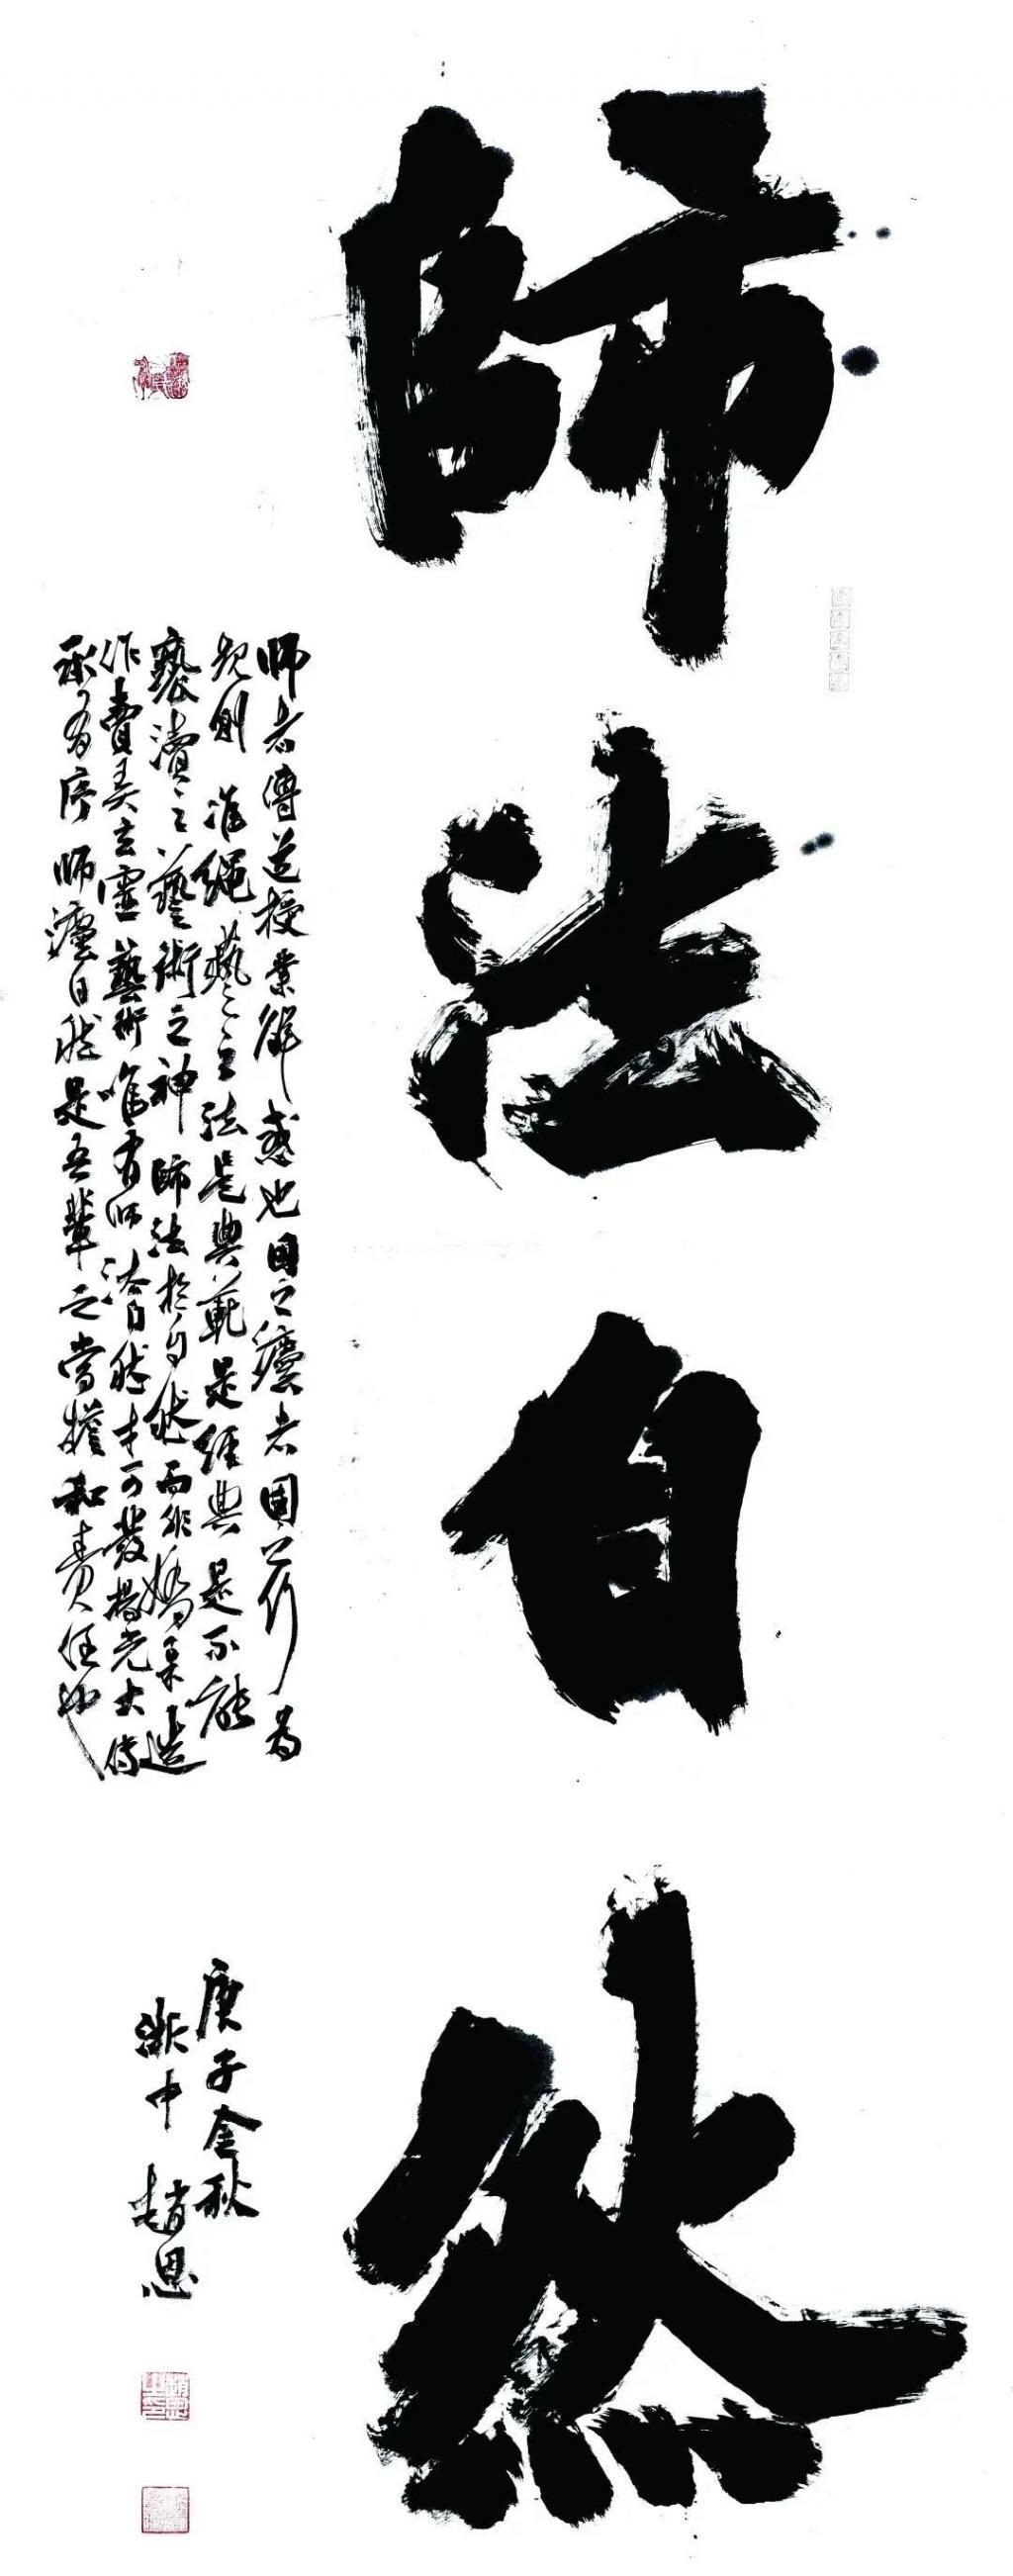 師法自然
師者傳道授業解惑也國之灋者國行為
規則準繩藝之法是典範是經典是不能
褻瀆之藝術之神師法於自然而非矯柔造
作賣弄玄虛藝術唯有師法自然才可發揚光大傳
承有序師灋自然是吾輩之當擔和責任也
庚子金秋
浙中趙恩